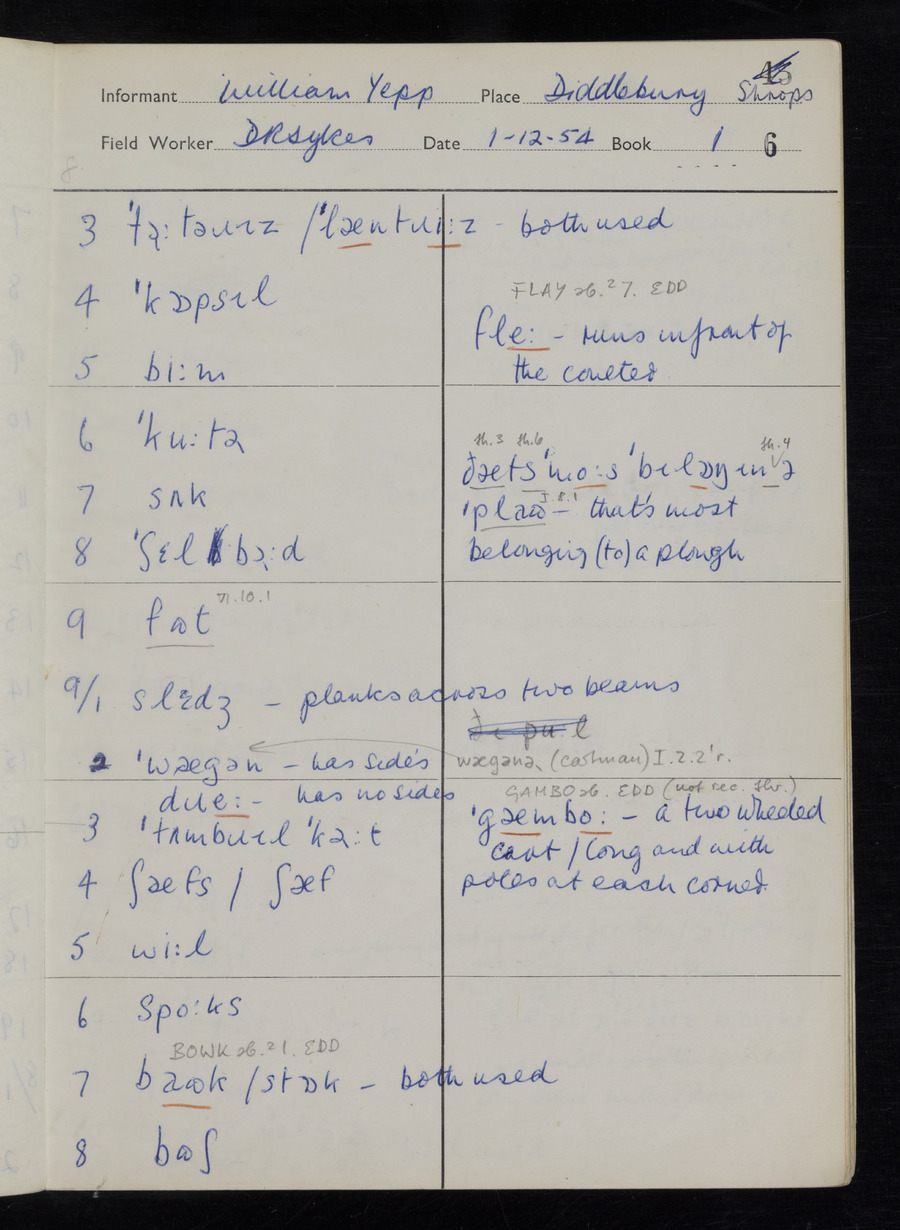 45
Informant William Yepp Place Diddlebury Shrops
Field Worker DRSykes Date 1-12-54 Book 1 6
3 / ˈlæntɹɪːz - both used
4 ˈkɔpsɪl
FLAY sb.² 7. EDD
fleː - runs in front of
the coulter
5 biːm
6
th.3 th.6 th.4
ðæts ˈmoːs ˈbɪlɔŋɪn ə
I.8.1
that's most
belonging (to) a plough
7 sʌk
8
VI.10.1
9 fɷt
9/1 slɛdʒ - planks across two beams
2 ˈwægən - has sides
(cartman) I.2.2'r.
has no sides
GAMBO sb. EDD (not rec. Shr.)
ˈgæmboː - a two wheeled
cart / long and with
poles at each corner
3
4 ʃæfs / ʃæf
5 wiːl
6 spoːks
BOWK sb.² 1. EDD
7 / stɔk - both used
8 bɷʃ